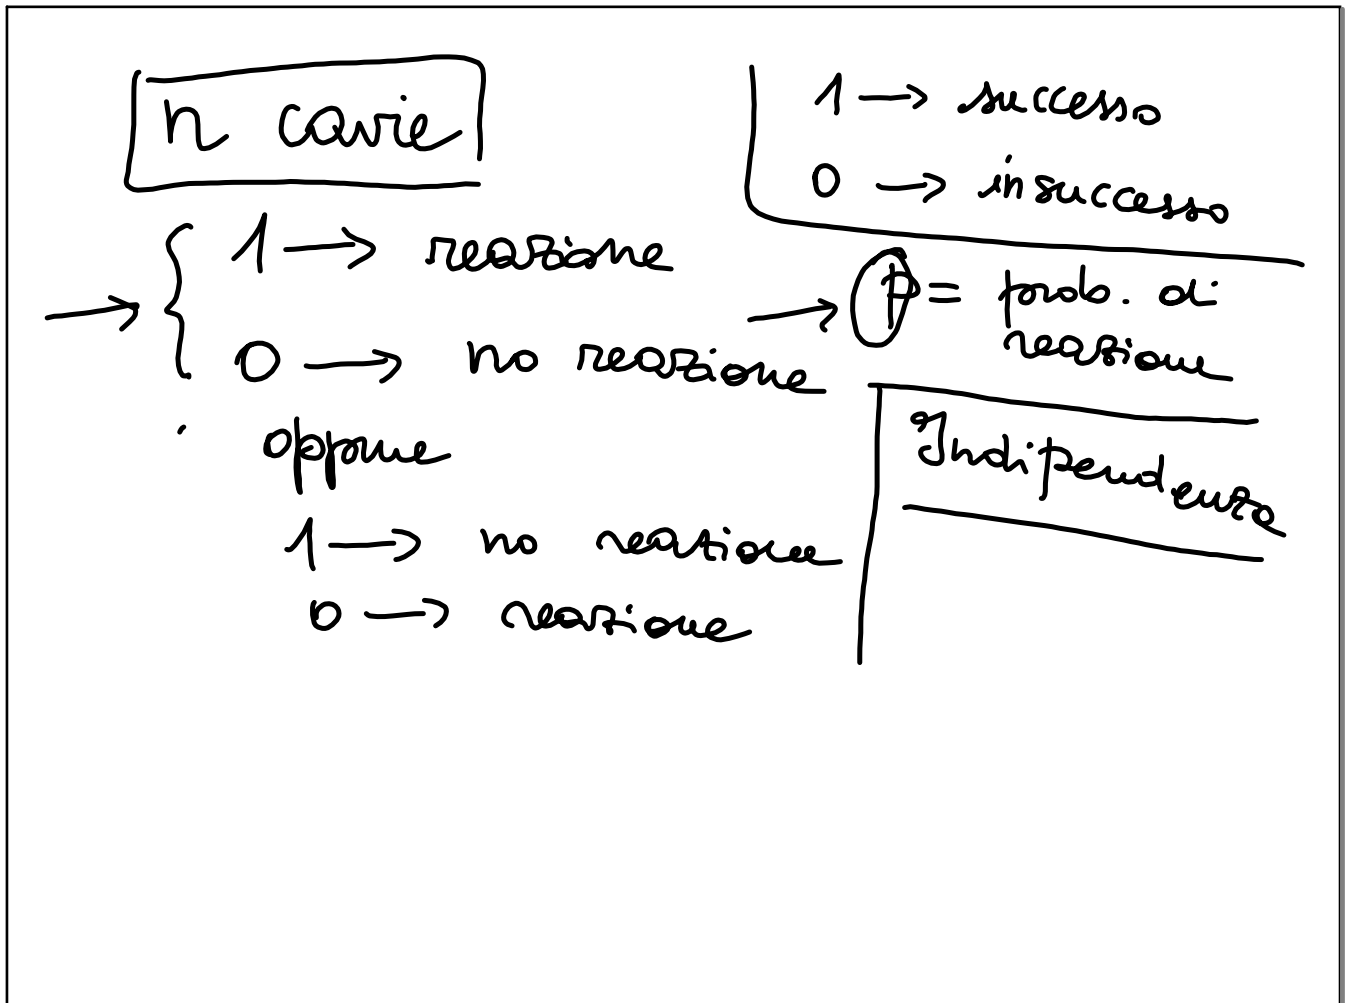 n cavie
1 → reazione
0 → no reazione
oppure
1 → no reazione
0 → reazione
1 → successo
0 → insuccesso
→ p = prob. di
reazione
Indipendenza